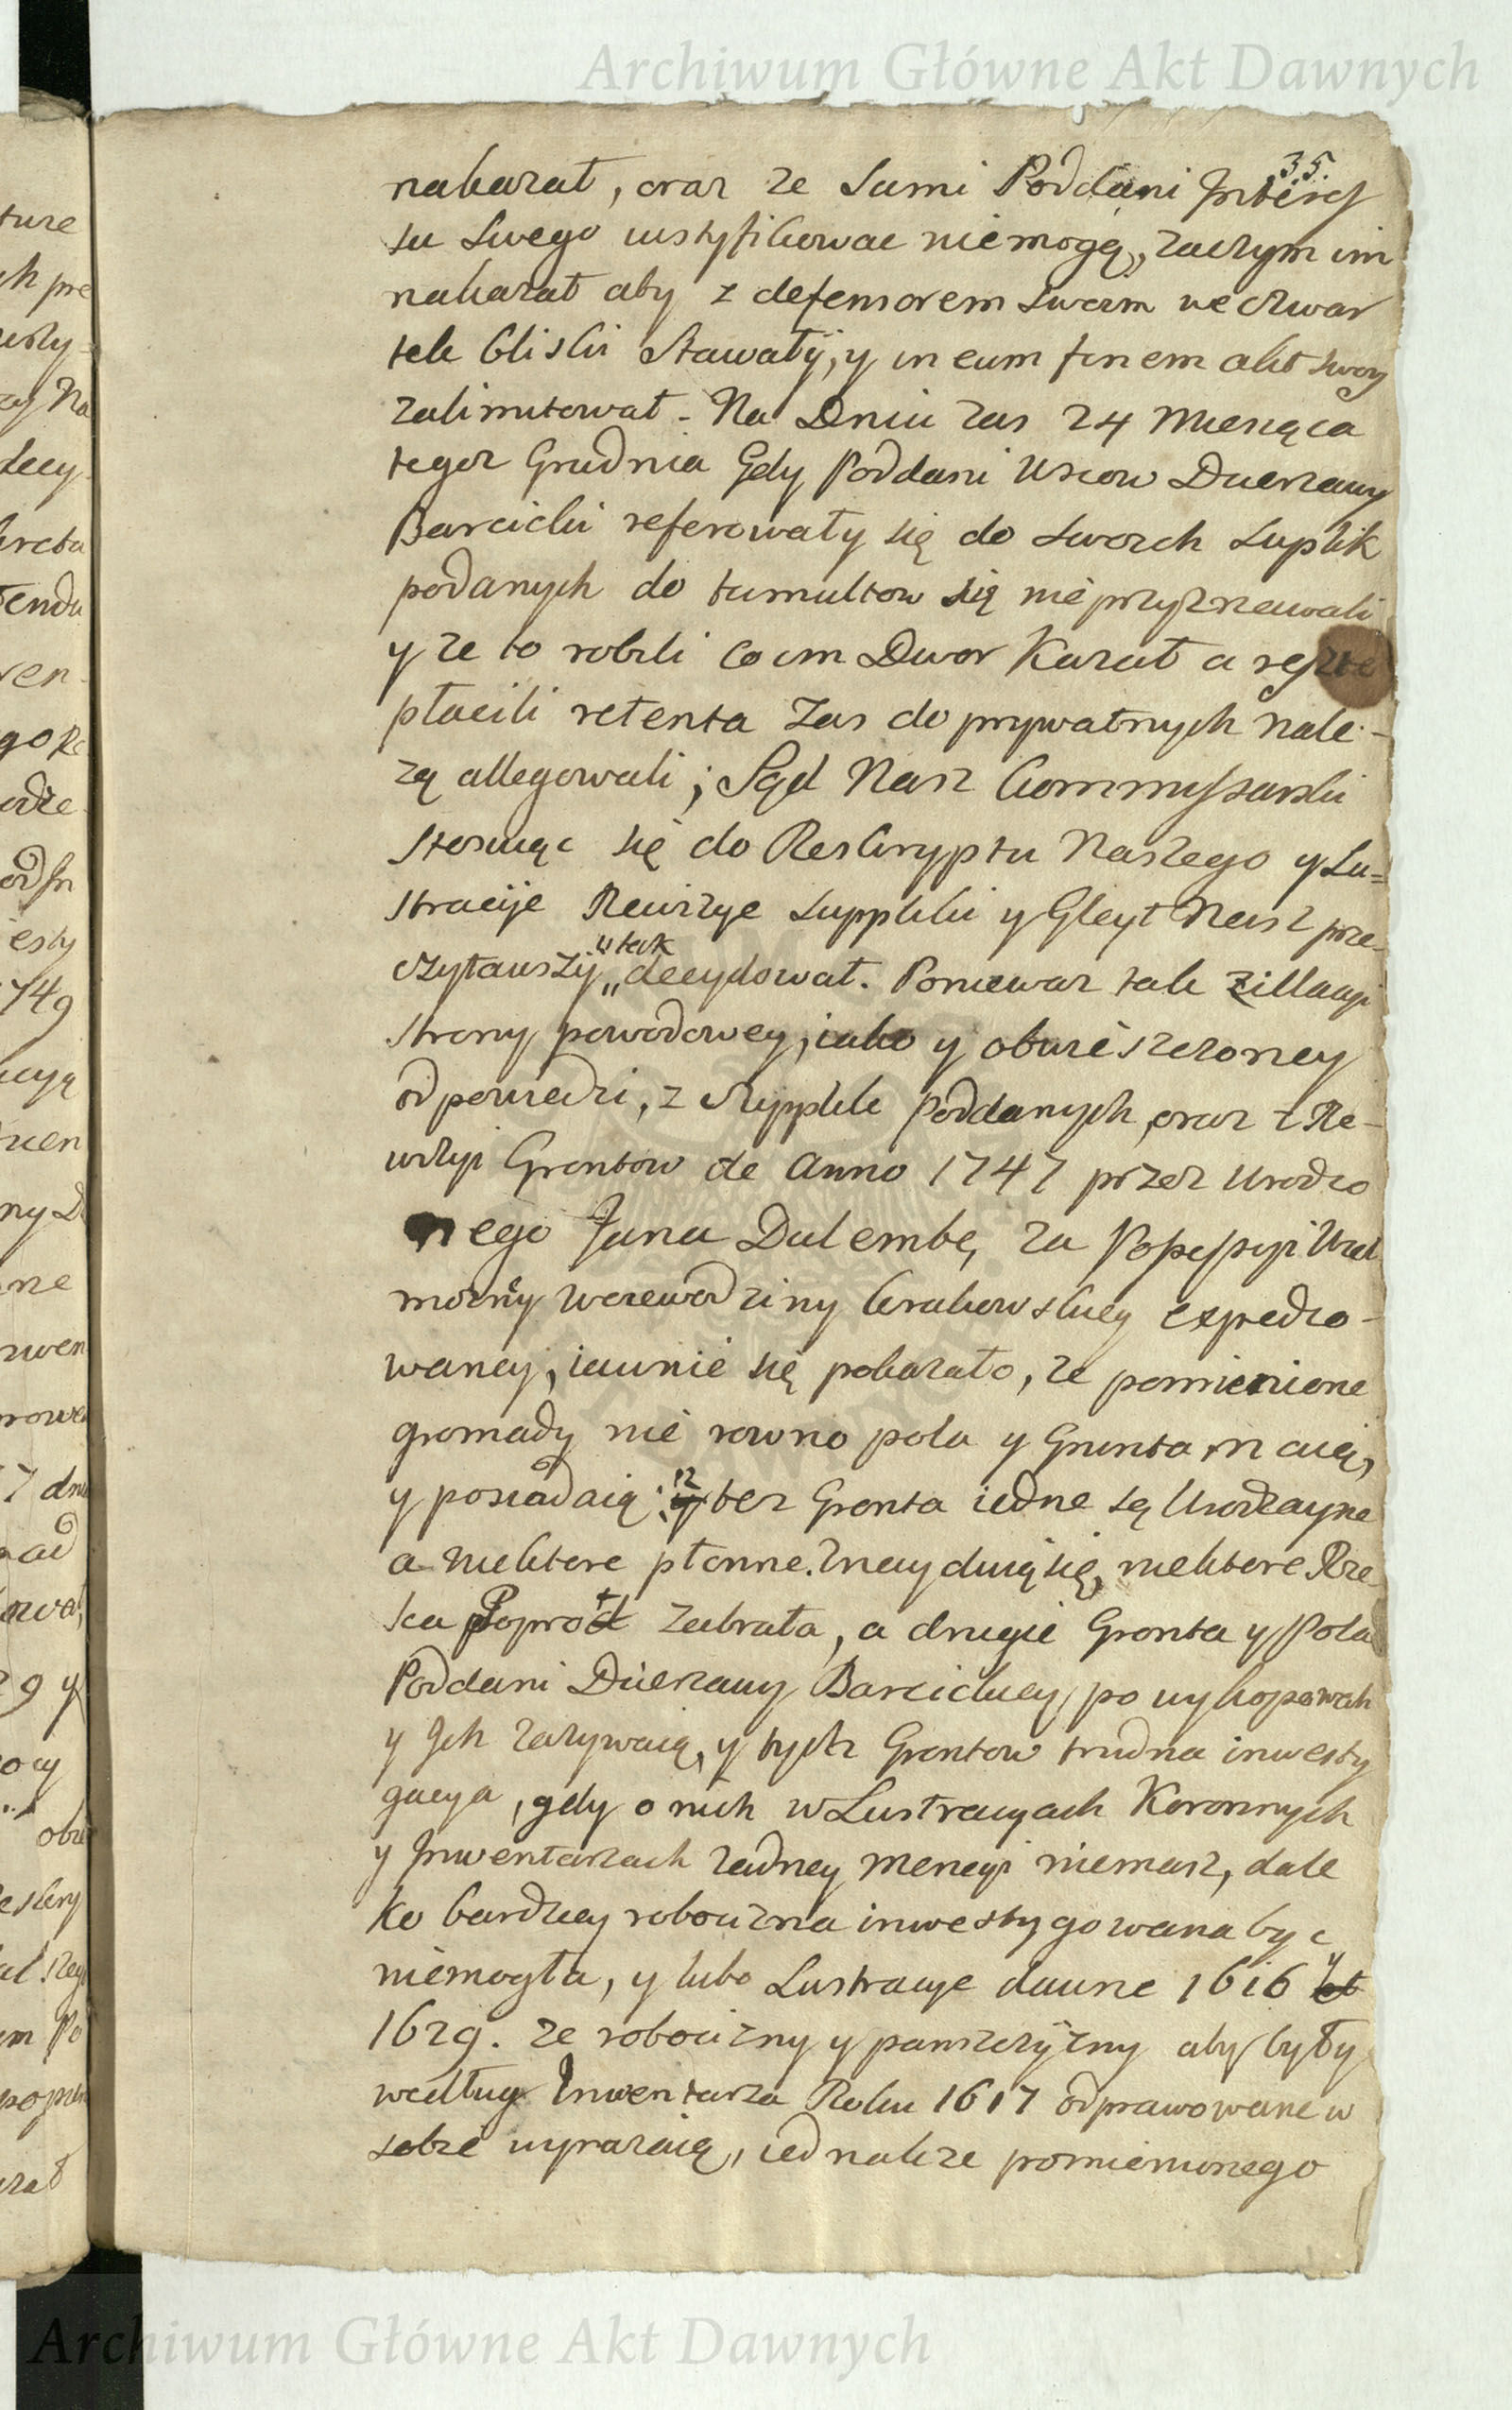 Archiwum Główne Akt Dawnych
35.
nakazał, oraz ze Sami Poddani Interes
su Swego iustyfikowac niemogą, zaczym im
nakazał aby z defensorem swoim we czwar
tek bliski Stawały, y in eum finem akt swoy
zalimitował. Na Dniu zas 24 Miesiąca
tegoz Grudnia Gdy Poddani Usiow Dzierzawy
Barcicki referowały się do swoich suplik
podanych do tumultow się nie przyznawali
y ze to robili co im Dwor Kazał a reszte
płacili retenta zas do prywatnych nale-
zą allegowali; Sąd Nasz Kommyssarski
stosuiąc się do Reskryptu Naszego y Lu=
stracije Rewizye suppliki y Gleyt Nasz prze-
czytawszy "tak decydował. Poniewaz tak z illacyi
strony powodowey, iako y obwieszczoney
odpowiedzi, z Supplik Poddanych, oraz z Re-
wizyi Grontow de Anno 1747 przez Urodzo
nego Jana Dulembę, za Possessyi Wiel
mozny Woiewodziny Krakowskiey expedio-
waney, iawnie się pokazało, ze pomienione
gromady nie rowno pola y Grunta maią,
y posiadaią: iz tez Gronta iedne są Urodzayne
a niektore płonne. Znayduią się, niektore Rze
ka Poprot zabrała, a drugie Gronta y Pola
Poddani Dzierzawy Barcickiey po wykopowali
y Ich zazywaią, y tych Grontow trudna inwesty
gacya, gdy o nich w Lustracyach Koronnych
y Inwentarzach zadney mencyi niemasz, dale
ko bardziey robocizna inwestygowana byc
niemogła, y lubo Lustracye dawne 1616 y
1629. ze robocizny y panszczyzny aby były
według Inwentarza Roku 1617 odprawowane w
sobie wyrazaią, iednakze pomienionego
Archiwum Główne Akt Dawnych